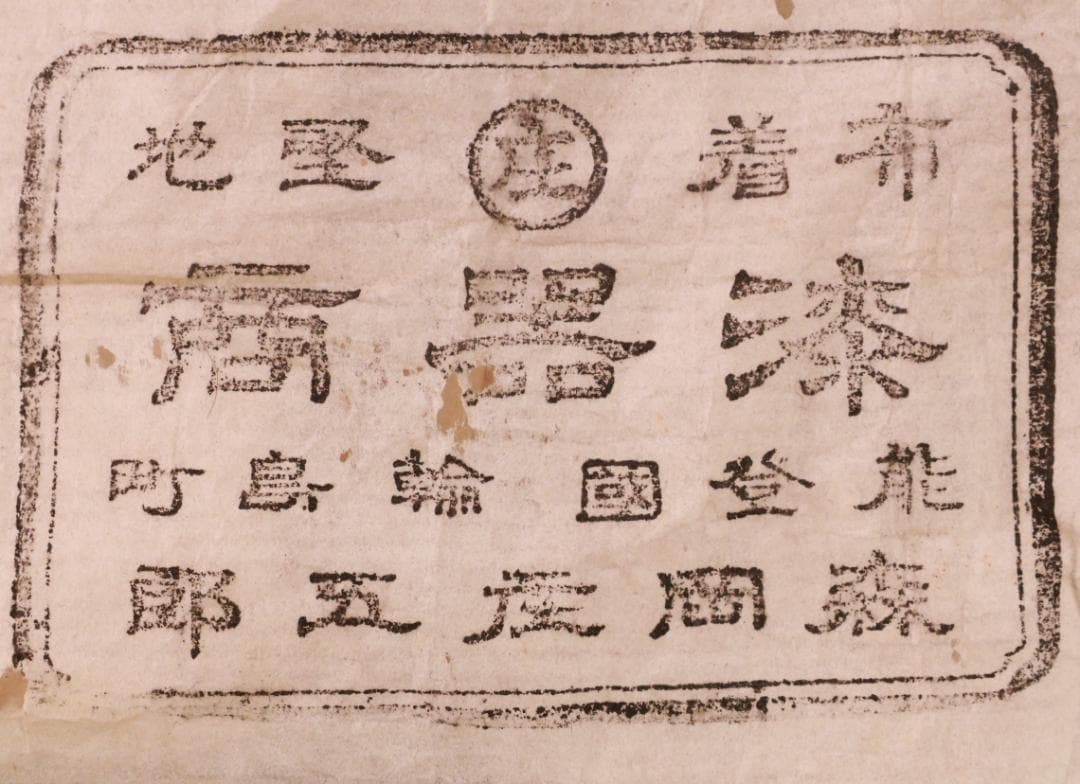 布着 庄 堅地
漆器商
能登國輪島町
森岡庄五郎